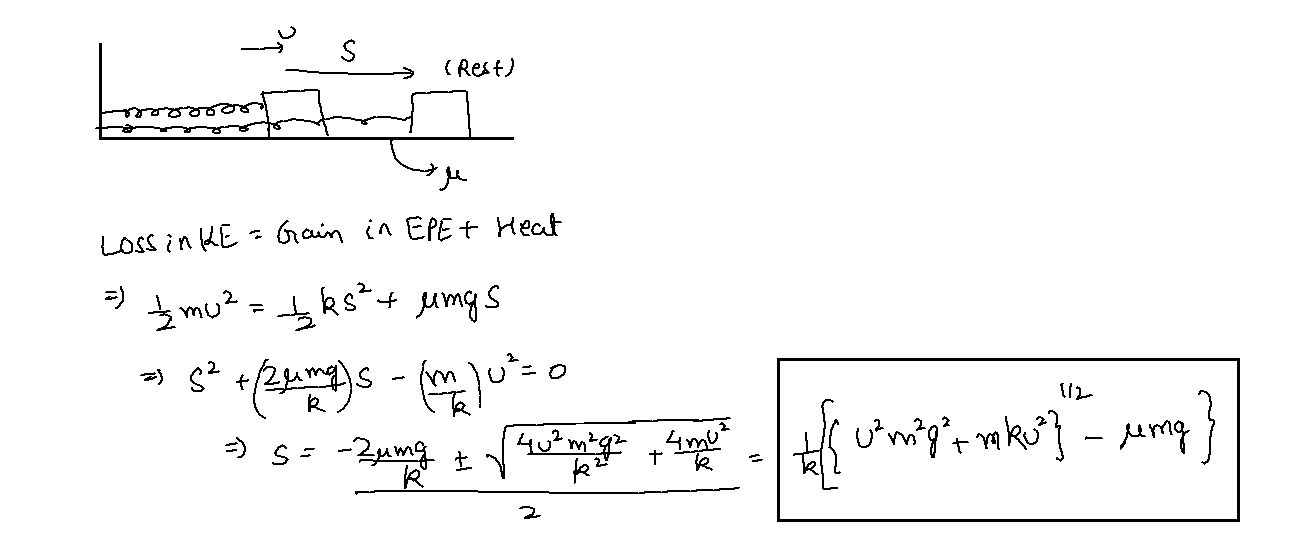 υ
S
(Rest)
μ
Loss in KE = Gain in EPE + Heat
=) 1/2 mυ² = 1/2 kS² + μmgS
=) S² + (2μmg/k)S - (m/k)υ² = 0
=) S = (-2μmg/k ± √(4υ²m²g²/k² + 4mυ²/k))/2 = 1/k[{υ²m²g² + mkυ²}^1/2 - μmg}